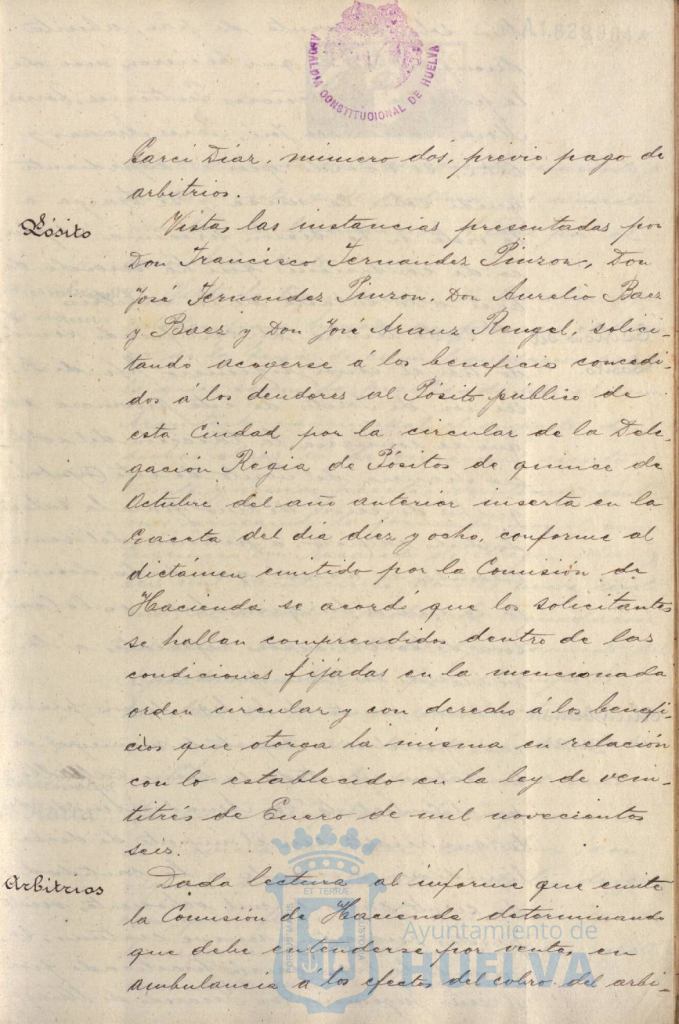 ALCALDIA CONSTITUCIONAL DE HUELVA
Garci Diaz, número dós, previo pago de
arbitrios.
Pósito
Vistas las instancias presentadas por
Don Francisco Fernandez Pinzon, Don
José Fernandez Pinzon, Don Aurelio Baez
y Baez y Don José Aranz Rengel, solici-
tando acogerse á los beneficio concedi-
dos á los deudores al Pósito público de
esta Ciudad por la circular de la Dele-
gación Régia de Pósitos de quince de
Octubre del año anterior inserta en la
Gaceta del dia diez y ocho, conforme al
dictámen emitido por la Comisión de
Hacienda se acordó que los solicitantes
se hallan comprendidos dentro de las
condiciones fijadas en la mencionada
orden circular y con derecho á los benefi-
cios que otorga la misma en relación
con lo establecido en la ley de vein-
titrés de Enero de mil novecientos
seis.
Arbitrios
Dada lectura al informe que emite
la Comisión de Hacienda determinando
que debe entenderse por ventas en
ambulancia á los efectos del cobro del arbi-
PORTUS MARIS ET TERRE CUSTODIA
Ayuntamiento de
HUELVA